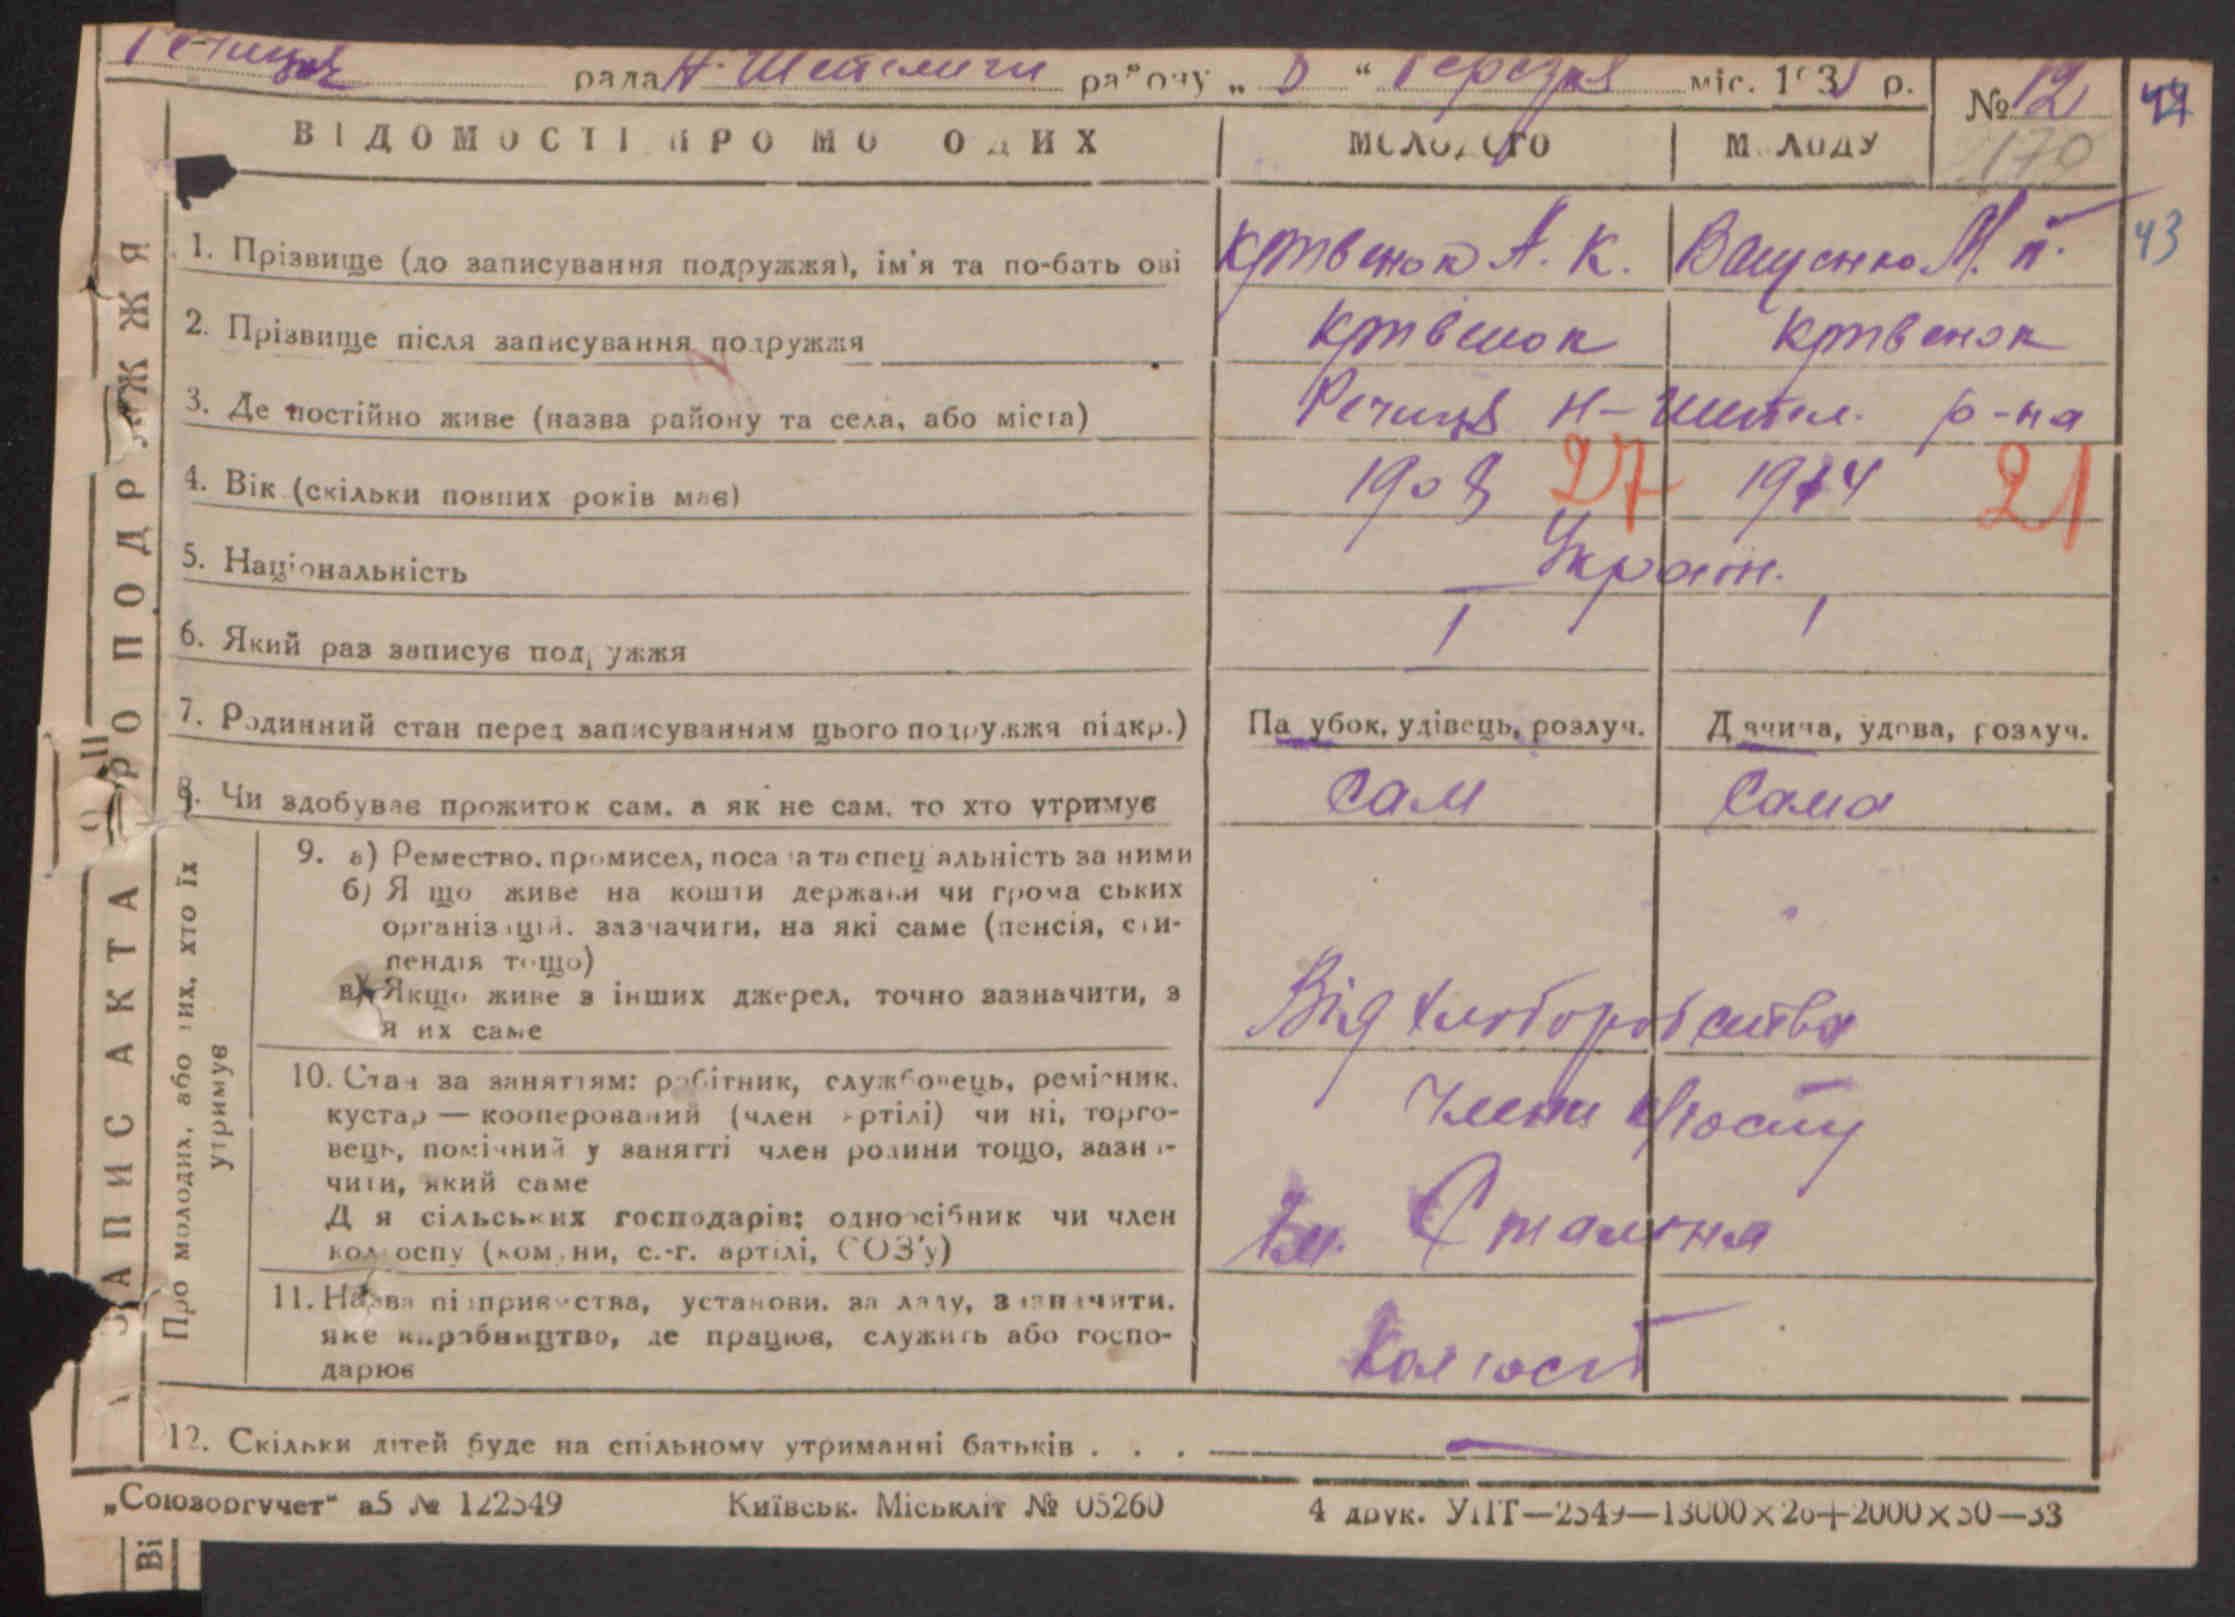 Речицьк рада Н-Шепеличи району „ 8 “ Березня міс. 1935 р. № 12
ВІДОМОСТІ ПРО МОЛОДИХ МОЛОДОГО МОЛОДУ 170
ЗАПИС АКТА ПРО ПОДРУЖЖЯ
1. Прізвище (до записування подружжя), ім'я та по-батькові А. К. М. П. 43
2. Прізвище після записування подружжя
3. Де постійно живе (назва району та села, або міста) Речиця Н-Шепел. р-на
4. Вік (скільки повних років має) 1908 27 1914 21
5. Національність Україн.
6. Який раз записує подружжя 1 1
7. Родинний стан перед записуванням цього подружжя підкр.) Парубок, удівець, розлуч. Дівчина, удова, розлуч.
8. Чи здобуває прожиток сам, а як не сам, то хто утримує Сам Сама
Про молодих, або тих, хто їх
утримує
9. а) Ремество, промисел, посада та спеціальність за ними
б) Якщо живе на кошти держави чи громадських
організацій, зазначити, на які саме (пенсія, сти-
пендія тощо)
в) Якщо живе з інших джерел, точно зазначити, з
яких саме Від хлоборобства
10. Стан за заняттям: робітник, службовець, ремісник,
кустар — кооперований (член артілі) чи ні, торго-
вець, помічний у занятті член родини тощо, зазна-
чити, який саме
Для сільських господарів: одноосібник чи член
колгоспу (комуни, с.-г. артілі, СОЗ'у)
Члени к/госпу
Ім. Сталіна
11. Назва підприємства, установи, закладу, зазначити,
яке виробництво, де працює, служить або госпо-
дарює Колгосп
12. Скільки дітей буде на спільному утриманні батьків . . . —
„Союзоргучет“ а5 № 122549 Київськ. Міськліт № 05260 4 друк. УПТ—2549—13000×26+2000×50—33
Ві